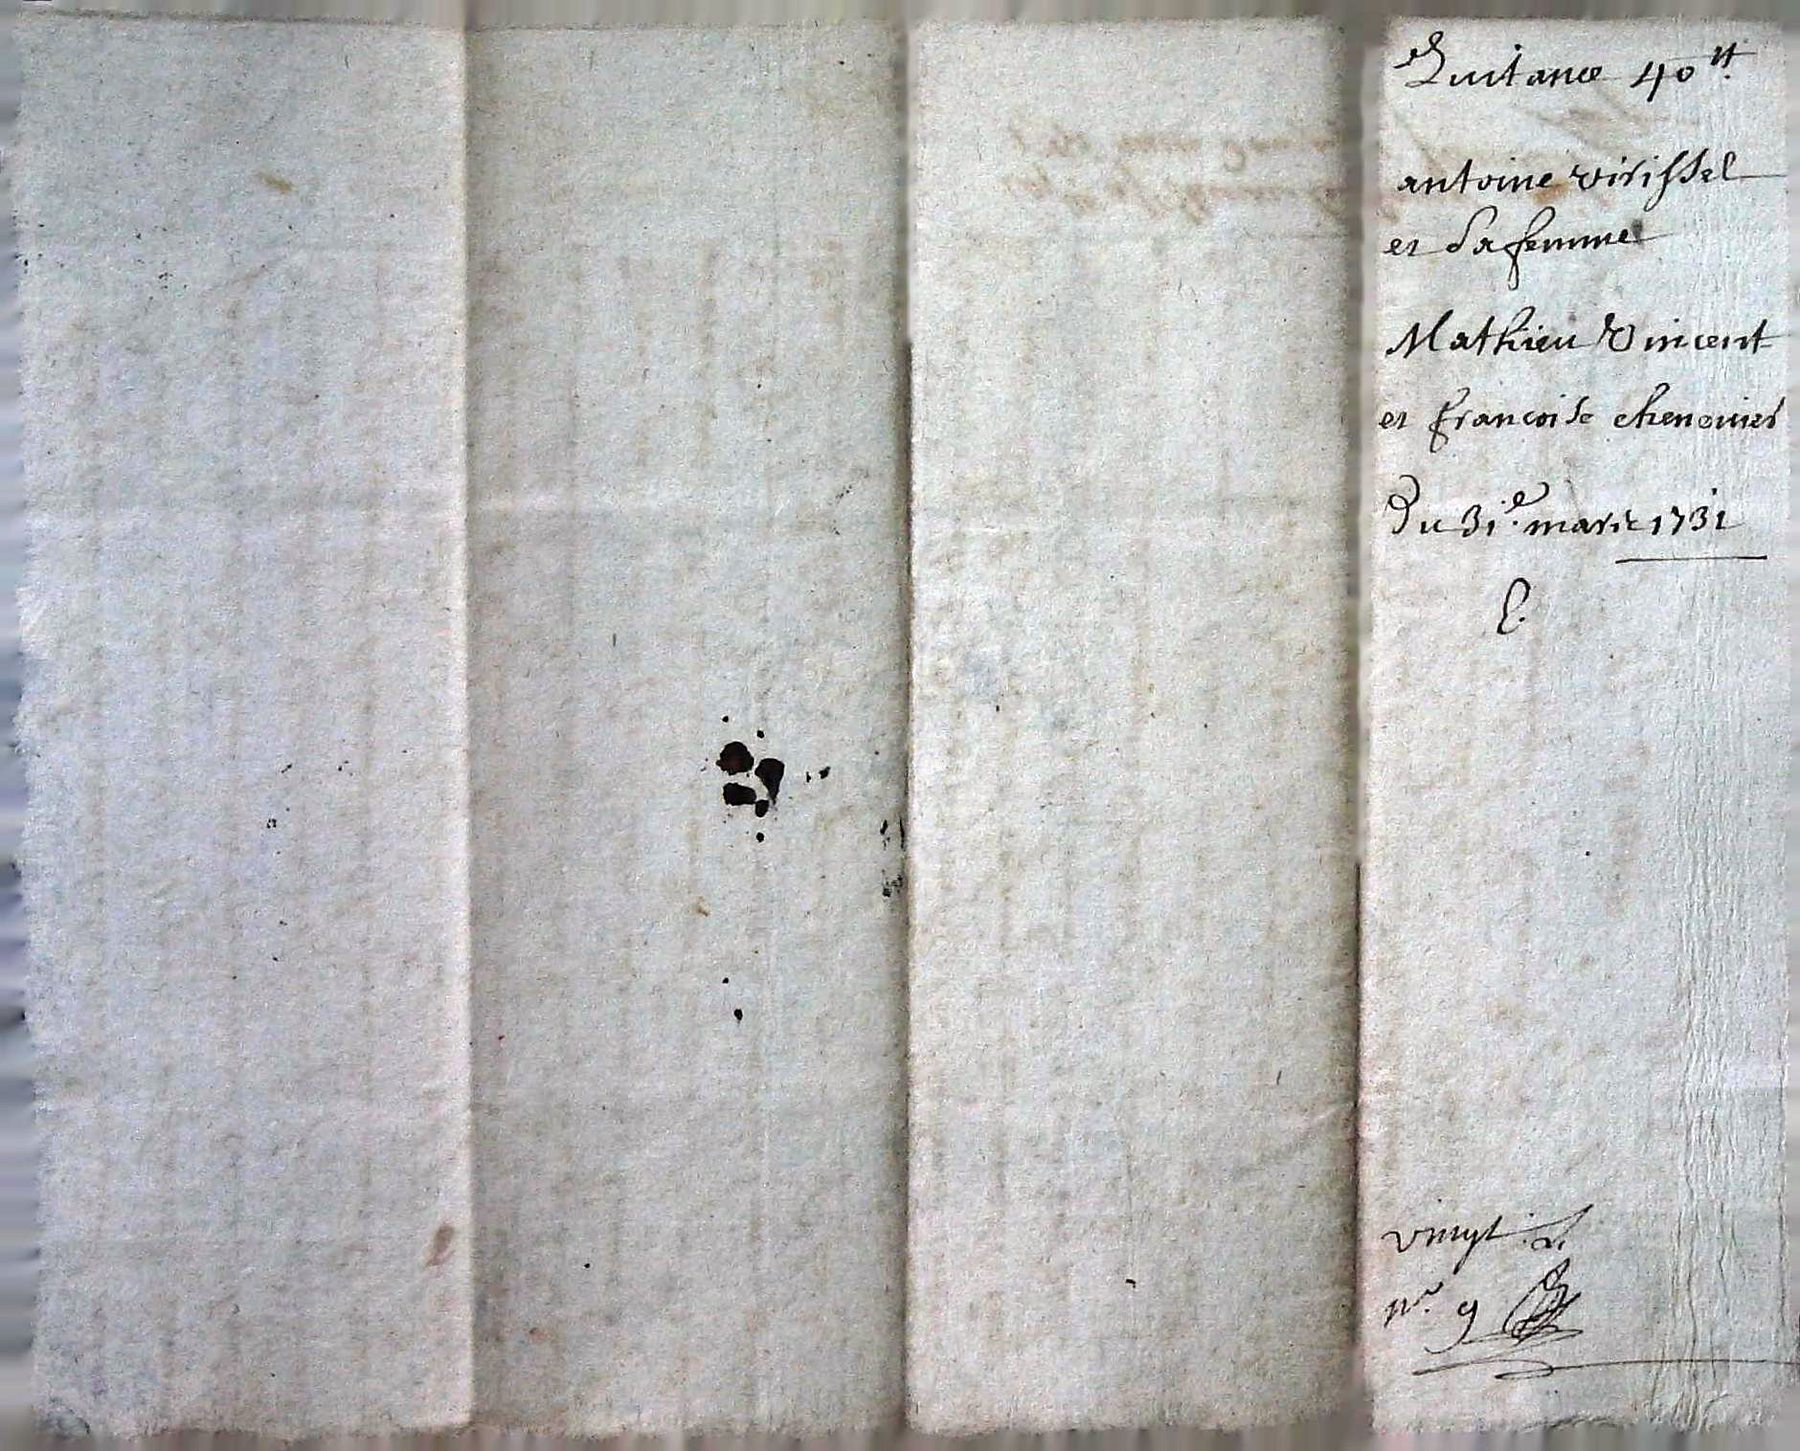 Quitance 40 tt
antoine virissel
et sa femme
Mathieu Vincent
et francoise chenevier
Du 31.e mars 1731
E.
vingt
nº. 9